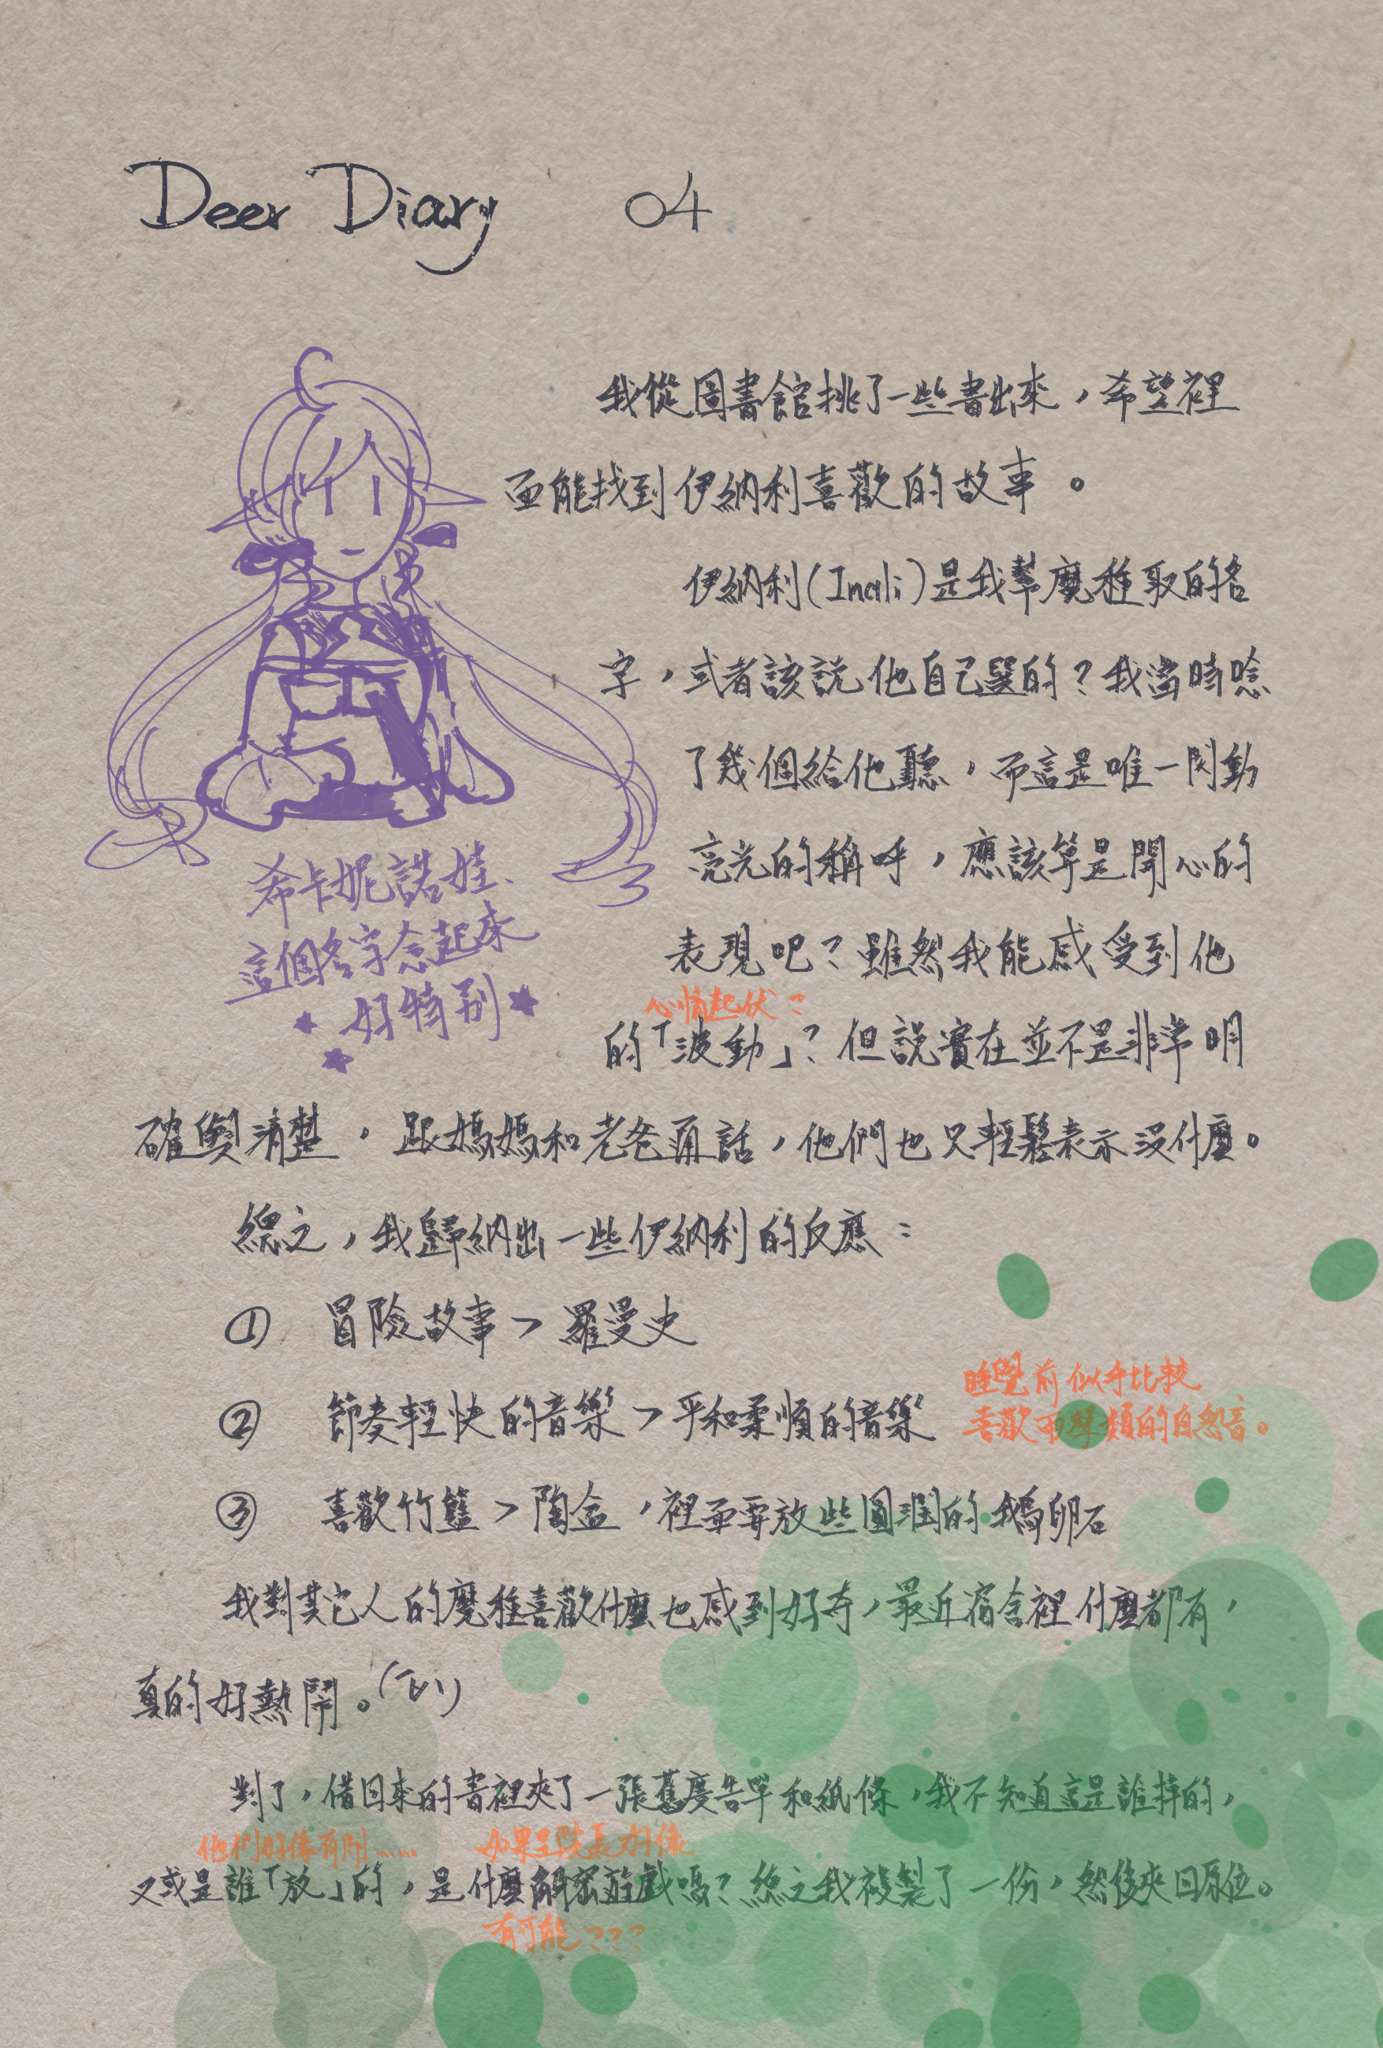 Deer Diary 04
我從圖書館挑了一些書出來，希望裡
面能找到伊納利喜歡的故事。
伊納利(Inali)是我幫魔種取的名
字，或者該說他自己選的？我當時唸
了幾個給他聽，而這是唯一閃動
亮光的稱呼，應該算是開心的
表現吧？雖然我能感受到他
心情起伏？
的「波動」？但說實在並不是非常明
確與清楚，跟媽媽和老爸通話，他們也只輕鬆表示沒什麼。
希卡妮諾娃、
這個名字念起來
好特別
總之，我歸納出一些伊納利的反應：
① 冒險故事＞羅曼史
② 節奏輕快的音樂＞平和柔順的音樂
睡覺前似乎比較
喜歡雨聲類的自然音。
③ 喜歡竹籃＞陶盆，裡面要放些圓潤的鵝卵石
我對其它人的魔種喜歡什麼也感到好奇，最近宿舍裡什麼都有，
真的好熱鬧。
對了，借回來的書裡夾了一張舊慶告單和紙條，我不知道這是誰掉的，
他們好像有附……
如果是院長好像
又或是誰「放」的，是什麼解密遊戲嗎？總之我複製了一份，然後夾回原位。
有可能？？？